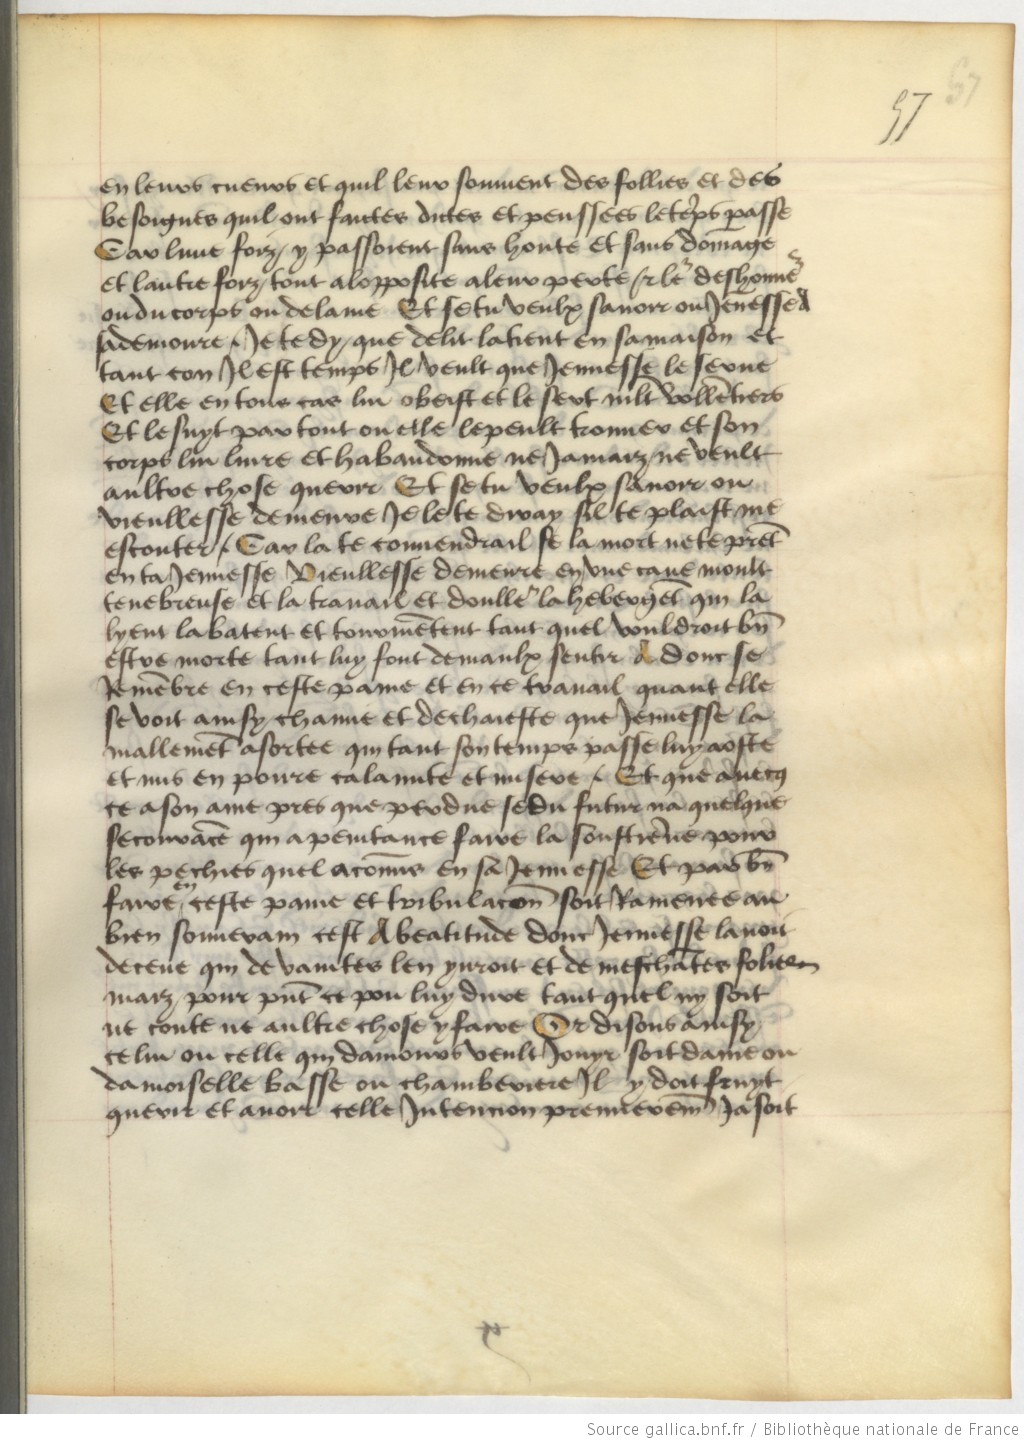 57 57
en leurs cueurs et quil leur souvient des follies et des
besoignes quil ont faictes dictes et penssees le tẽps passe
Car lune forz y passoient sans honte et sans dõmage
et lautre forz tout alopposite a leur perte / et leʳ deshonneʳ
ou du corps ou de lame Et se tu veulx savoir ou Jenesse a
sa demoure / Je te dy que delit la tient en sa maison et
tant con Il est temps Il veult que Jennesse le serve
Et elle en tous cas lui obeist et le sert mlt vollẽtiers
Et le suyt par tout ou elle le peult trouver et son
corps lui livre et habandonne ne Jamaiz ne veult
aultre chose querir Et se tu veulx savoir ou
vieullesse demeure Je le te diray sil te plaist me
escouter / Car la te convendra il se la mort ne te prẽt
en ta Jennesse Vieullesse demeure en une cave moult
tenebreuse et la travail et doulleʳ la hebergẽt qui la
lyent la batent et tourmẽtent tant quel vouldroit bñ
estre morte tant luy font de maulx sentir A donc se
Remẽbre en ceste paine et en ce travail quant elle
se voit ainsy chanue et dechaieste que Jennesse la
mallemẽt asortee qui tant son temps passe luy a oste
et mis en povre calamite et misere / Et que avecq̃
ce a son ame pres que perdue se du futur na quelque
secourãce qui a penitance faire la soustiẽne pour
les pechies quel a cõmis en sa Jennesse Et par bñ
faire en ceste paine et tribulacõn soit Ramenee au
bien souverain cest A beatitude dont Jennesse lavoit
deceue qui de vanites len yvroit et de meschãtes folies
maiz pour pñt ce pou luy dure tant quel ny soit
ne conte ne aultre chose y faire Or disons ainsy
celui ou celle qui damours veult Jouyr soit dame ou
damoiselle basse ou chamberiere Il y doit fruyt
querir et avoir celle Intencion premieremẽ Ja soit
Source gallica.bnf.fr / Bibliothèque nationale de France